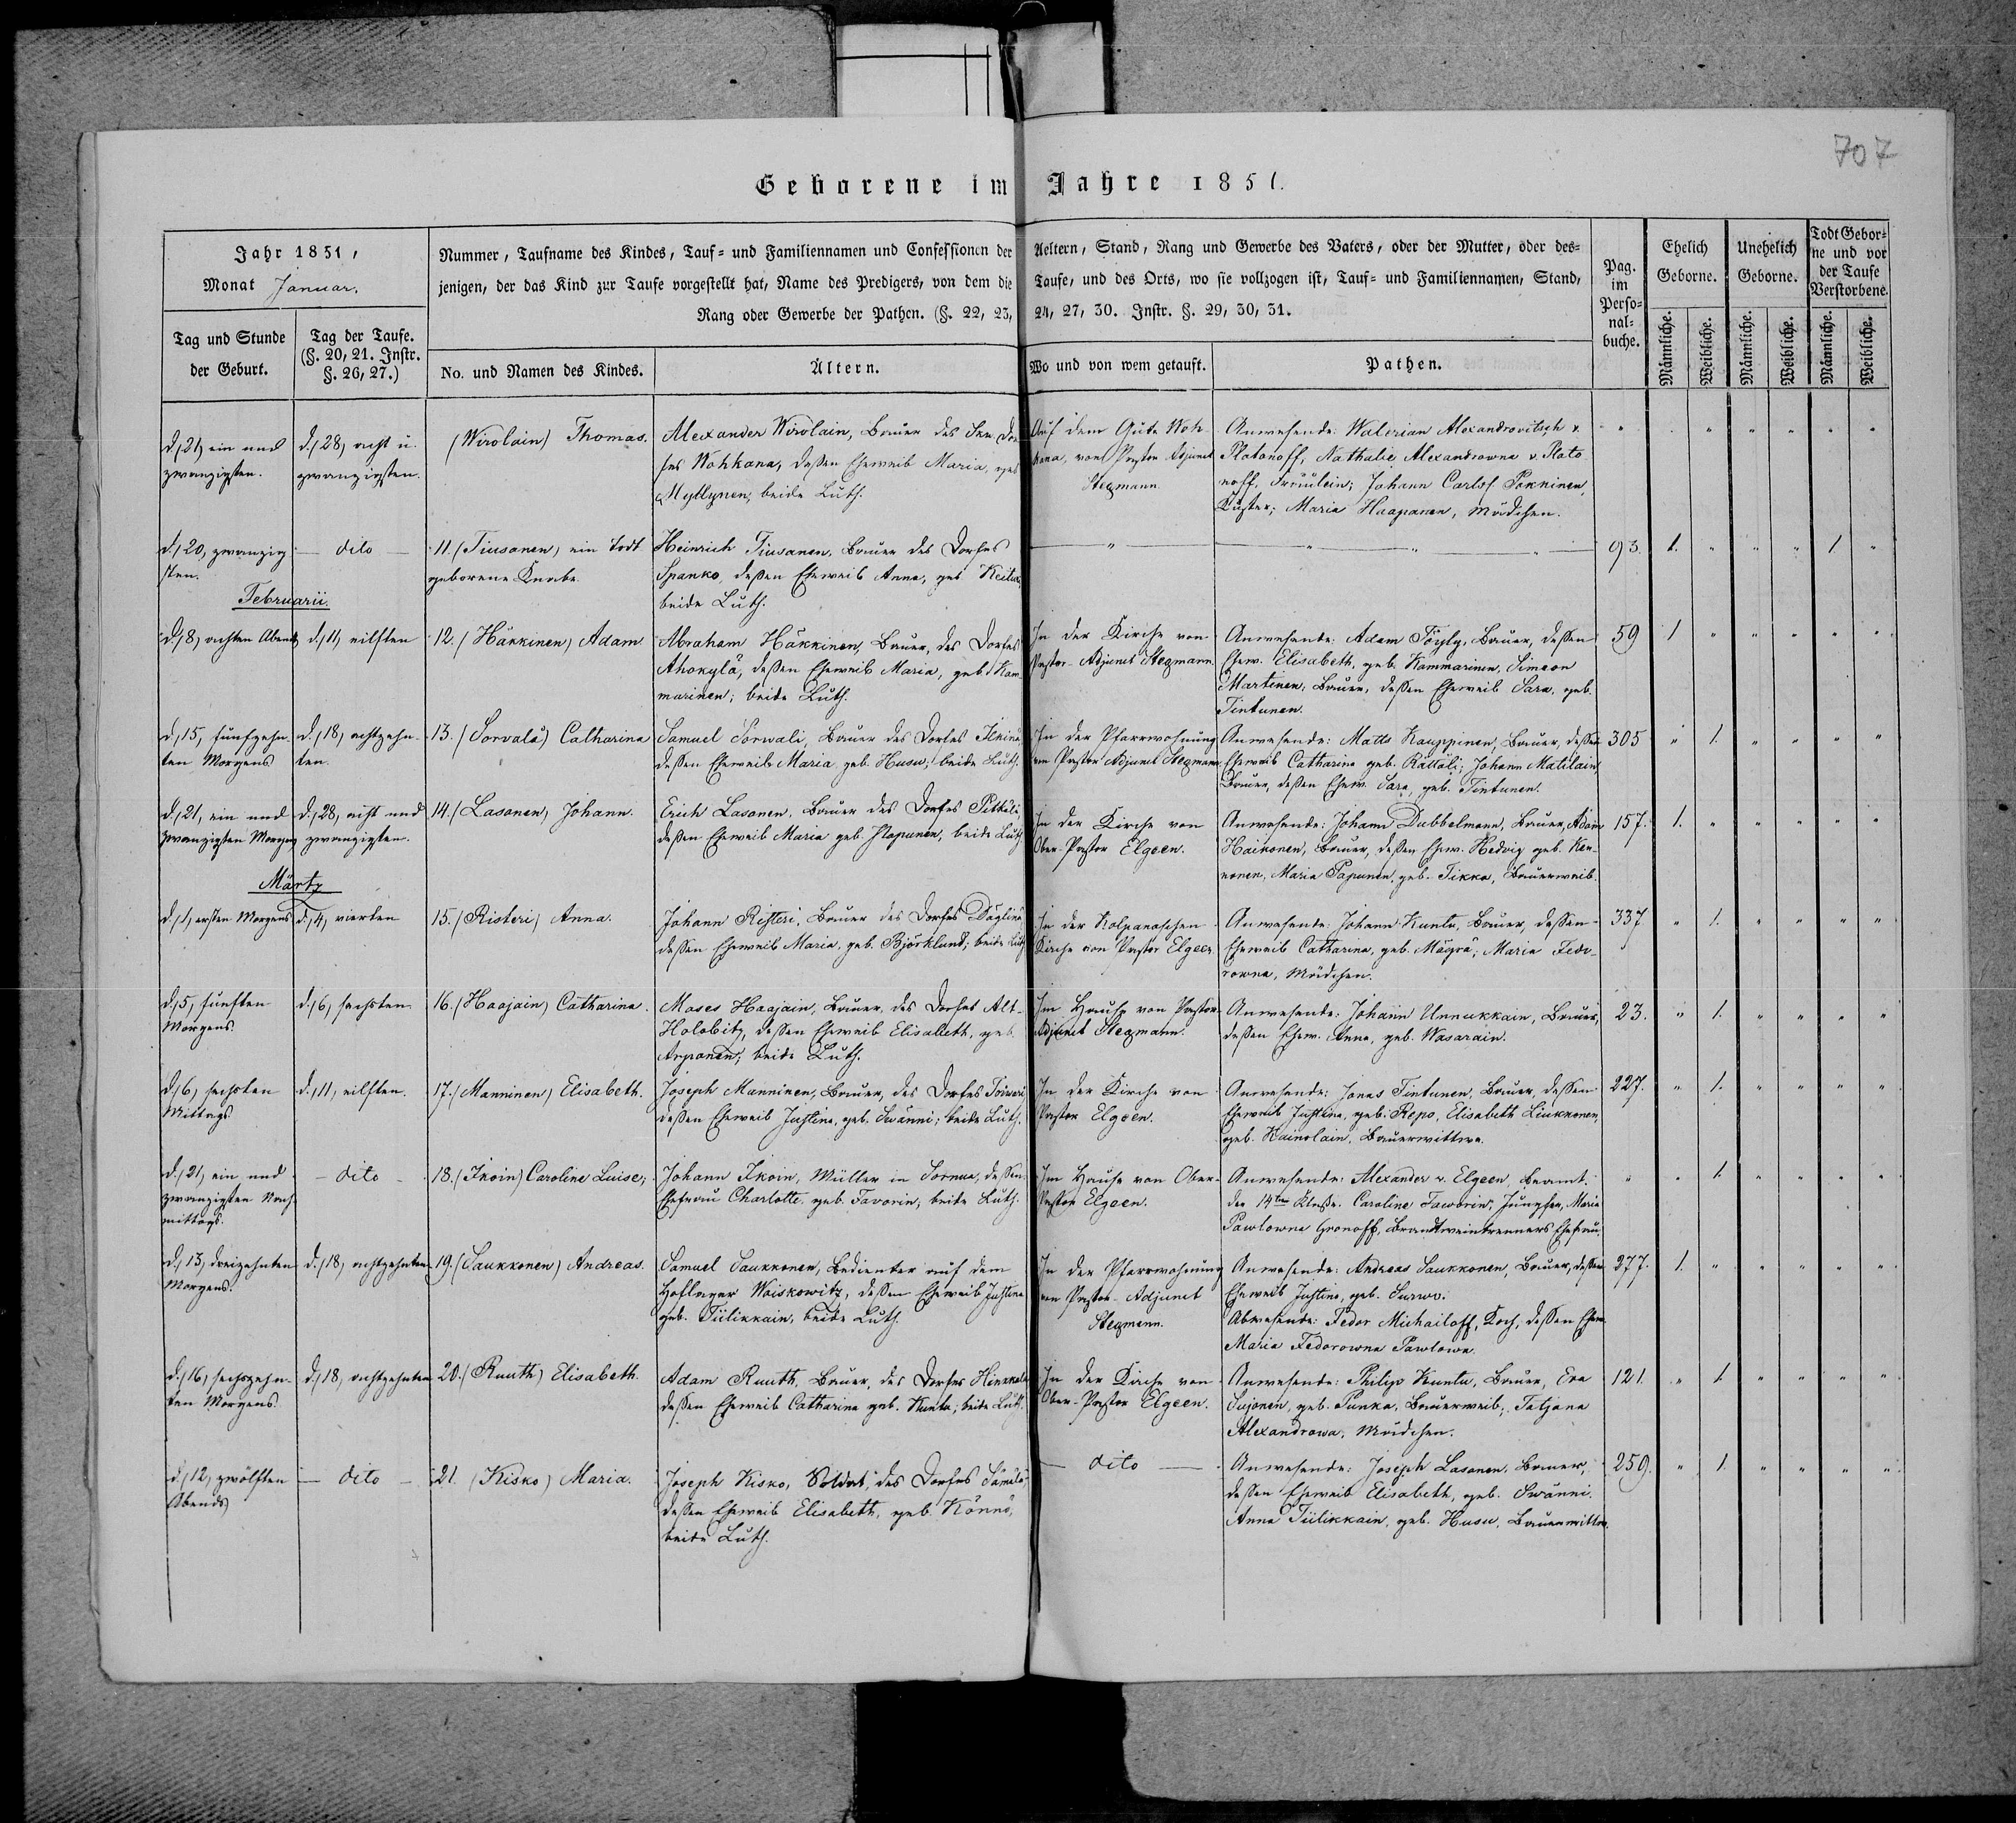 707
Geborene im Jahre 1851.
Jahr 1851,
Monat Januar.
Nummer, Taufname des Kindes, Tauf- und Familiennamen und Confessionen der Aeltern, Stand, Rang und Gewerbe des Vaters, oder der Mutter, oder des-
jenigen, der das Kind zur Taufe vorgestellt hat, Name des Predigers, von dem die Taufe, und des Orts, wo sie vollzogen ist, Tauf- und Familiennamen, Stand,
Rang oder Gewerbe der Pathen. (§. 22, 23, 24, 27, 30. Instr. §. 29, 30, 31.
Pag.
im
Perso-
nal-
buche.
Ehelich
Geborne.
Unehelich
Geborne.
Todt Gebor-
ne und vor
der Taufe
Verstorbene.
Tag und Stunde
der Geburt.
Tag der Taufe.
(§. 20, 21. Instr.
§. 26, 27.)
No. und Namen des Kindes.
Ältern.
Wo und von wem getauft.
Pathen.
Männliche.
Weibliche.
Männliche.
Weibliche.
Männliche.
Weibliche.
d. 21, ein und
zwanzigsten.
d. 28, acht u.
zwanzigsten.
(Wirolain) Thomas.
Alexander Wirolain, Bauer des
Kohkana, deßen Eheweib Maria, geb
Myllynen, beide Luth.
Auf dem Gute Koh-
kana, von Pastor Adjunct
Stegmann.
Anwesende: Walerian Alexandrovitsch v.
Platonoff, Nathalie Alexandrowna v. Plato
noff, Fräulein; Johann Carlof Pakninen,
Küster; Maria Haapanen, Mädchen.
d. 20, zwanzig
sten.
dito
11. (Tiusanen, ein todt
geborene Knabe.
Heinrich Tiusanen, Bauer des Dorfes
Spanko, deßen Eheweib Anna, geb
beide Luth.
93. 1. " " " 1 "
Februarii.
d. 8, achten Abends
d. 11, eilften
12. (Häkkinen) Adam
Abraham Häkkinen, Bauer, des Dorfes
Ahokylä, deßen Eheweib Maria, geb. Kam-
marinen; beide Luth.
In der Kirche von
Pastor-Adjunct Stegmann.
Anwesende: Adam Töyly, Bauer, deßen
Ehew. Elisabeth, geb. Kammarinen, Simeon
Martinen, Bauer, deßen Eheweib Sara, geb.
Tintunen.
59 1 " " " " "
d. 15, funfzehn-
ten Morgens
d. 18, achtzehn-
ten.
13. (Sorvali) Catharina
Samuel Sorwali, Bauer des Dorfes Ikine
deßen Eheweib Maria geb. Husu; beide Luth.
In der Pfarrwohnung
von Pastor Adjunct Stegmann.
Anwesende: Matts Kauppinen, Bauer, deßen
Eheweib Catharina geb. Rättäli; Johann Matilain
Bauer, deßen Ehew. Sara, geb. Tintunen.
305 " 1. " " " "
d. 21, ein und
zwanzigsten Morgens
d. 28, acht und
zwanzigsten.
14. (Lasonen) Johann.
Erich Lasonen, Bauer des Dorfes Pitkäli
deßen Eheweib Maria geb. Hapunen, beide Luth
In der Kirche von
Ober-Pastor Elgeen.
Anwesende: Johann Dubbelmann, Bauer, Adam
Haikonen, Bauer, deßen Ehew. Hedvig geb. Kek-
konen, Maria Papunen, geb. Tikka, Bauerweib.
157. 1. " " " " "
Märtz
d. 1, ersten Morgens
d. 4, vierten
15. (Risteri) Anna.
Johann Risteri, Bauer des Dorfes Däglinö
deßen Eheweib Maria, geb. Björklund; beide Luth
In der Kolpanaschen
Kirche von Pastor Elgeen.
Anwesende: Johann Kuntu, Bauer, deßen
Eheweib Catharina, geb. Mägrä; Maria Fedo-
rowna, Mädchen.
337. " 1. " " " "
d. 5, funften
Morgens.
d. 6, sechsten
16. (Haajain) Catharina.
Moses Haajain, Bauer, des Dorfes Alt-
Holobitz, deßen Eheweib Elisabeth, geb.
Arponen; beide Luth.
Im Hause von Pastor
Adjunct Stegmann.
Anwesende: Johann Unnukkain, Bauer,
deßen Ehew. Anna, geb. Wasarain.
23. " 1. " " " "
d. 6, sechsten
Mittags
d. 11, eilften.
17. (Manninen) Elisabeth.
Joseph Manninen, Bauer, des Dorfes Toiwari
deßen Eheweib Justina, geb. Swänni; beide Luth.
In der Kirche von
Pastor Elgeen.
Anwesende: Jonas Tintunen, Bauer, deßen
Eheweib Justina, geb. Repo, Elisabeth Liukkonen,
geb. Kainolain, Bauerwittwe.
227. " 1. " " " "
d. 2, ein und
zwanzigsten Nach-
mittags.
dito
18. (Ikoin) Caroline Luise,
Johann Ikoin, Müller in Sornua, deßen
Ehefrau Charlotte, geb. Favorin, beide Luth.
Im Hause von Ober-
Pastor Elgeen.
Anwesende: Alexander v. Elgeen, Beamt.
der 14ten Klaße. Caroline Faworin, Jungfer, Maria
Pawlowna Gronoff, Brandtweinbrenners Ehefrau.
" " 1. " " " "
d. 13, dreizehnten
Morgens.
d. 18, achtzehnten
19. (Saukkonen) Andreas.
Samuel Saukkonen, Bedienter auf dem
Hoflager Woiskowitz, deßen Eheweib Justina
geb. Tiilikkain, beide Luth.
In der Pfarrwohnung
von Pastor-Adjunct
Stegmann.
Anwesende: Andreas Saukkonen, Bauer, deßen
Eheweib Justina, geb. Surwo.
Abwesende: Fedor Michailoff, Koch, deßen Ehew.
Maria Fedorowna Pawlowa.
277. 1. " " " " "
d. 16, sechszehn-
ten Morgens
d. 18, achtzehnten
20. (Ruuth) Elisabeth.
Adam Ruuth, Bauer, des Dorfes
deßen Eheweib Catharina geb. Kuntu; beide Luth.
In der Kirche von
Ober-Pastor Elgeen.
Anwesende: Philipp Kuntu, Bauer, Eva
Sujonen, geb. Punka, Bauerweib; Tatjana
Alexandrowa, Mädchen.
121. " 1. " " " "
d. 12, zwölften
Abends
dito
21. (Kisko) Maria.
Joseph Kisko, Soldat des Dorfes Sämälä,
deßen Eheweib Elisabeth, geb. Könnö,
beide Luth.
dito
Anwesende: Joseph Lasonen, Bauer,
deßen Eheweib Elisabeth, geb. Swänni.
Anna Tiilikkain, geb. Husu, Bauerwittwe.
259. " 1. " " " "